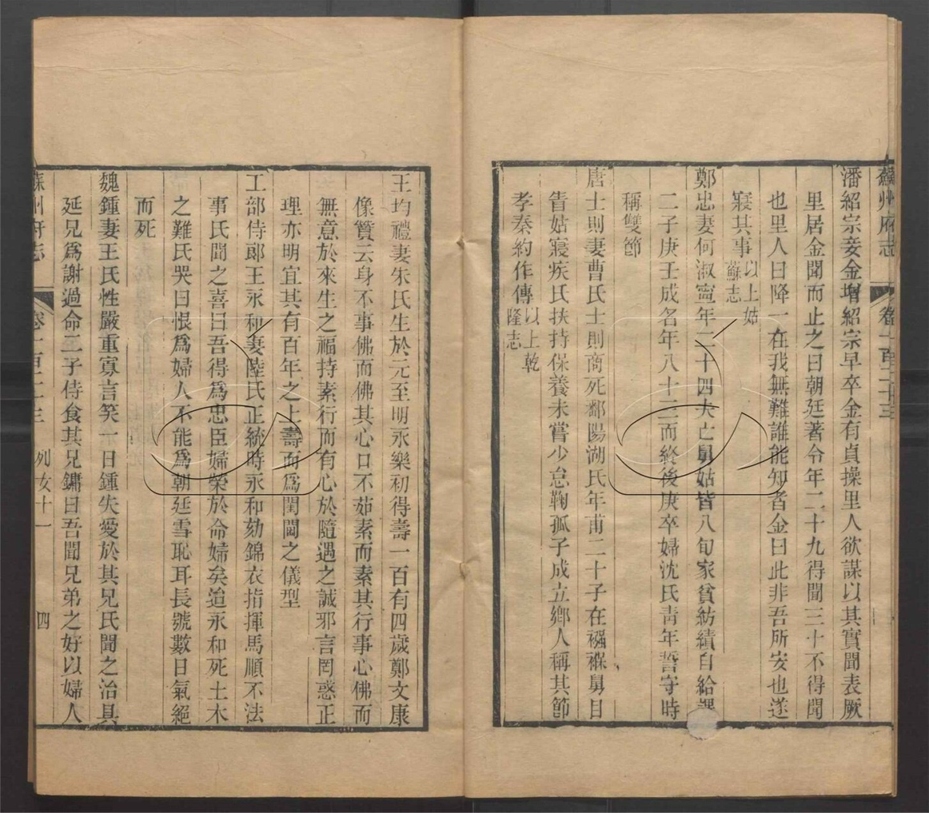 蘇州府志
卷一百二十三
潘紹宗妾金增紹宗早卒金有貞操里人欲謀以其實聞表厥
里居金聞而止之曰朝廷著令年二十九得聞三十不得聞
也里人曰降一在我無難誰能知者金曰此非吾所安也遂
寢其事以上姑蘇志
鄭忠妻何淑寧年二十四夫亡舅姑皆八旬家貧紡績自給課
二子庚壬成名年八十三而終後庚卒婦沈氏靑年誓守時
稱雙節
唐士則妻曹氏士則商死鄱陽湖氏年甫二十子在襁褓舅目
眚姑寢疾氏扶持保養未嘗少怠鞠孤子成立鄉人稱其節
孝秦約作傳以上乾隆志
王均禮妻朱氏生於元至明永樂初得壽一百有四歲鄭文康
像贊云身不事佛而佛其心口不茹素而素其行事心佛而
無意於來生之福持素行而有心於隨遇之誠邪言罔惑正
理亦明宜其有百年之上壽而爲閨閫之儀型
工部侍郞王永和妻陸氏正統時永和劾錦衣指揮馬順不法
事氏聞之喜曰吾得爲忠臣婦榮於命婦矣迨永和死土木
之難氏哭曰恨爲婦人不能爲朝廷雪恥耳長號數日氣絕
而死
魏鍾妻王氏性嚴重寡言笑一日鍾失愛於其兄氏聞之治具
延兄爲謝過命二子侍食其兄鏞曰吾聞兄弟之好以婦人
蘇州府志
卷一百二十三
列女十一
四